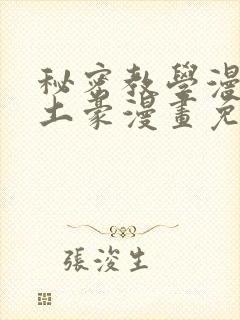 秘密教學漫
土豪漫畫免
張浚生